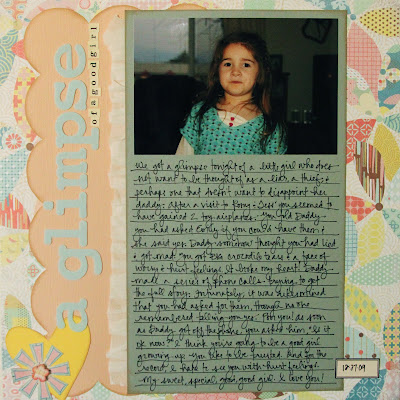 a glimpse
of a good girl
We got a glimpse tonight of a little girl who does
not want to be thought of as a liar, a thief &
perhaps one that doesn't want to disappoint her
daddy. After a visit to Romy & Jess' you seemed to
have gained 2 toy airplanes. You told Daddy
you had asked Emily if you could have them &
she said yes. Daddy somehow thought you had lied
& got mad. You got crocodile tears & a face of
worry & hurt feelings. It broke my heart. Daddy
made a series of phone calls trying to get
the full story. Fortunately, it was determined
that you had asked for them, though no one
remembered telling you yes. For you as soon
as Daddy got off the phone you asked him, "Is it
ok now?" I think you're going to be a good girl
growing up. You like to be trusted. And for the
record, I hate to see you with hurt feelings.
My sweet, special, good, good girl. I love you!
12.27.09